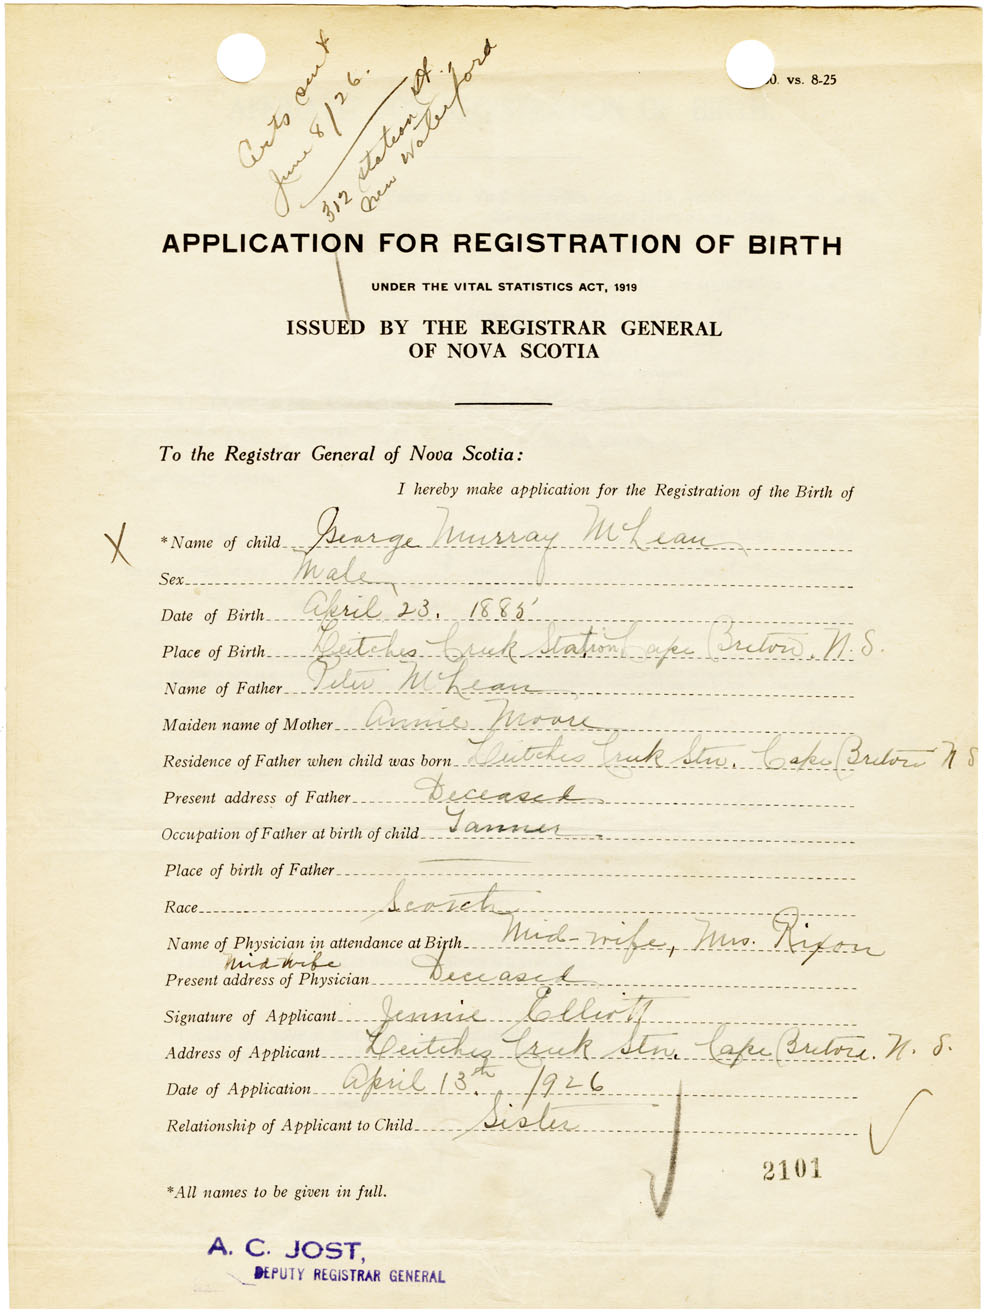 Certs sent
June 8/26.
312 Station St.,
New Waterford
0. vs. 8-25
APPLICATION FOR REGISTRATION OF BIRTH
UNDER THE VITAL STATISTICS ACT, 1919
ISSUED BY THE REGISTRAR GENERAL
OF NOVA SCOTIA
To the Registrar General of Nova Scotia:
I hereby make application for the Registration of the Birth of
X *Name of child George Murray McLean
Sex Male
Date of Birth April 23. 1885
Place of Birth Leitches Creek Station Cape Breton, N. S.
Name of Father Peter McLean
Maiden name of Mother Annie Moore
Residence of Father when child was born Leitches Creek Stn. Cape Breton N S
Present address of Father Deceased
Occupation of Father at birth of child Tanner
Place of birth of Father
Race Scotch
Name of Physician in attendance at Birth Mid-wife, Mrs. Rixon
Midwife
Present address of Physician Deceased
Signature of Applicant Jennie Elliott
Address of Applicant Leitches Creek Stn. Cape Breton. N. S.
Date of Application April 13th 1926
Relationship of Applicant to Child Sister
2101
*All names to be given in full.
A. C. JOST,
DEPUTY REGISTRAR GENERAL